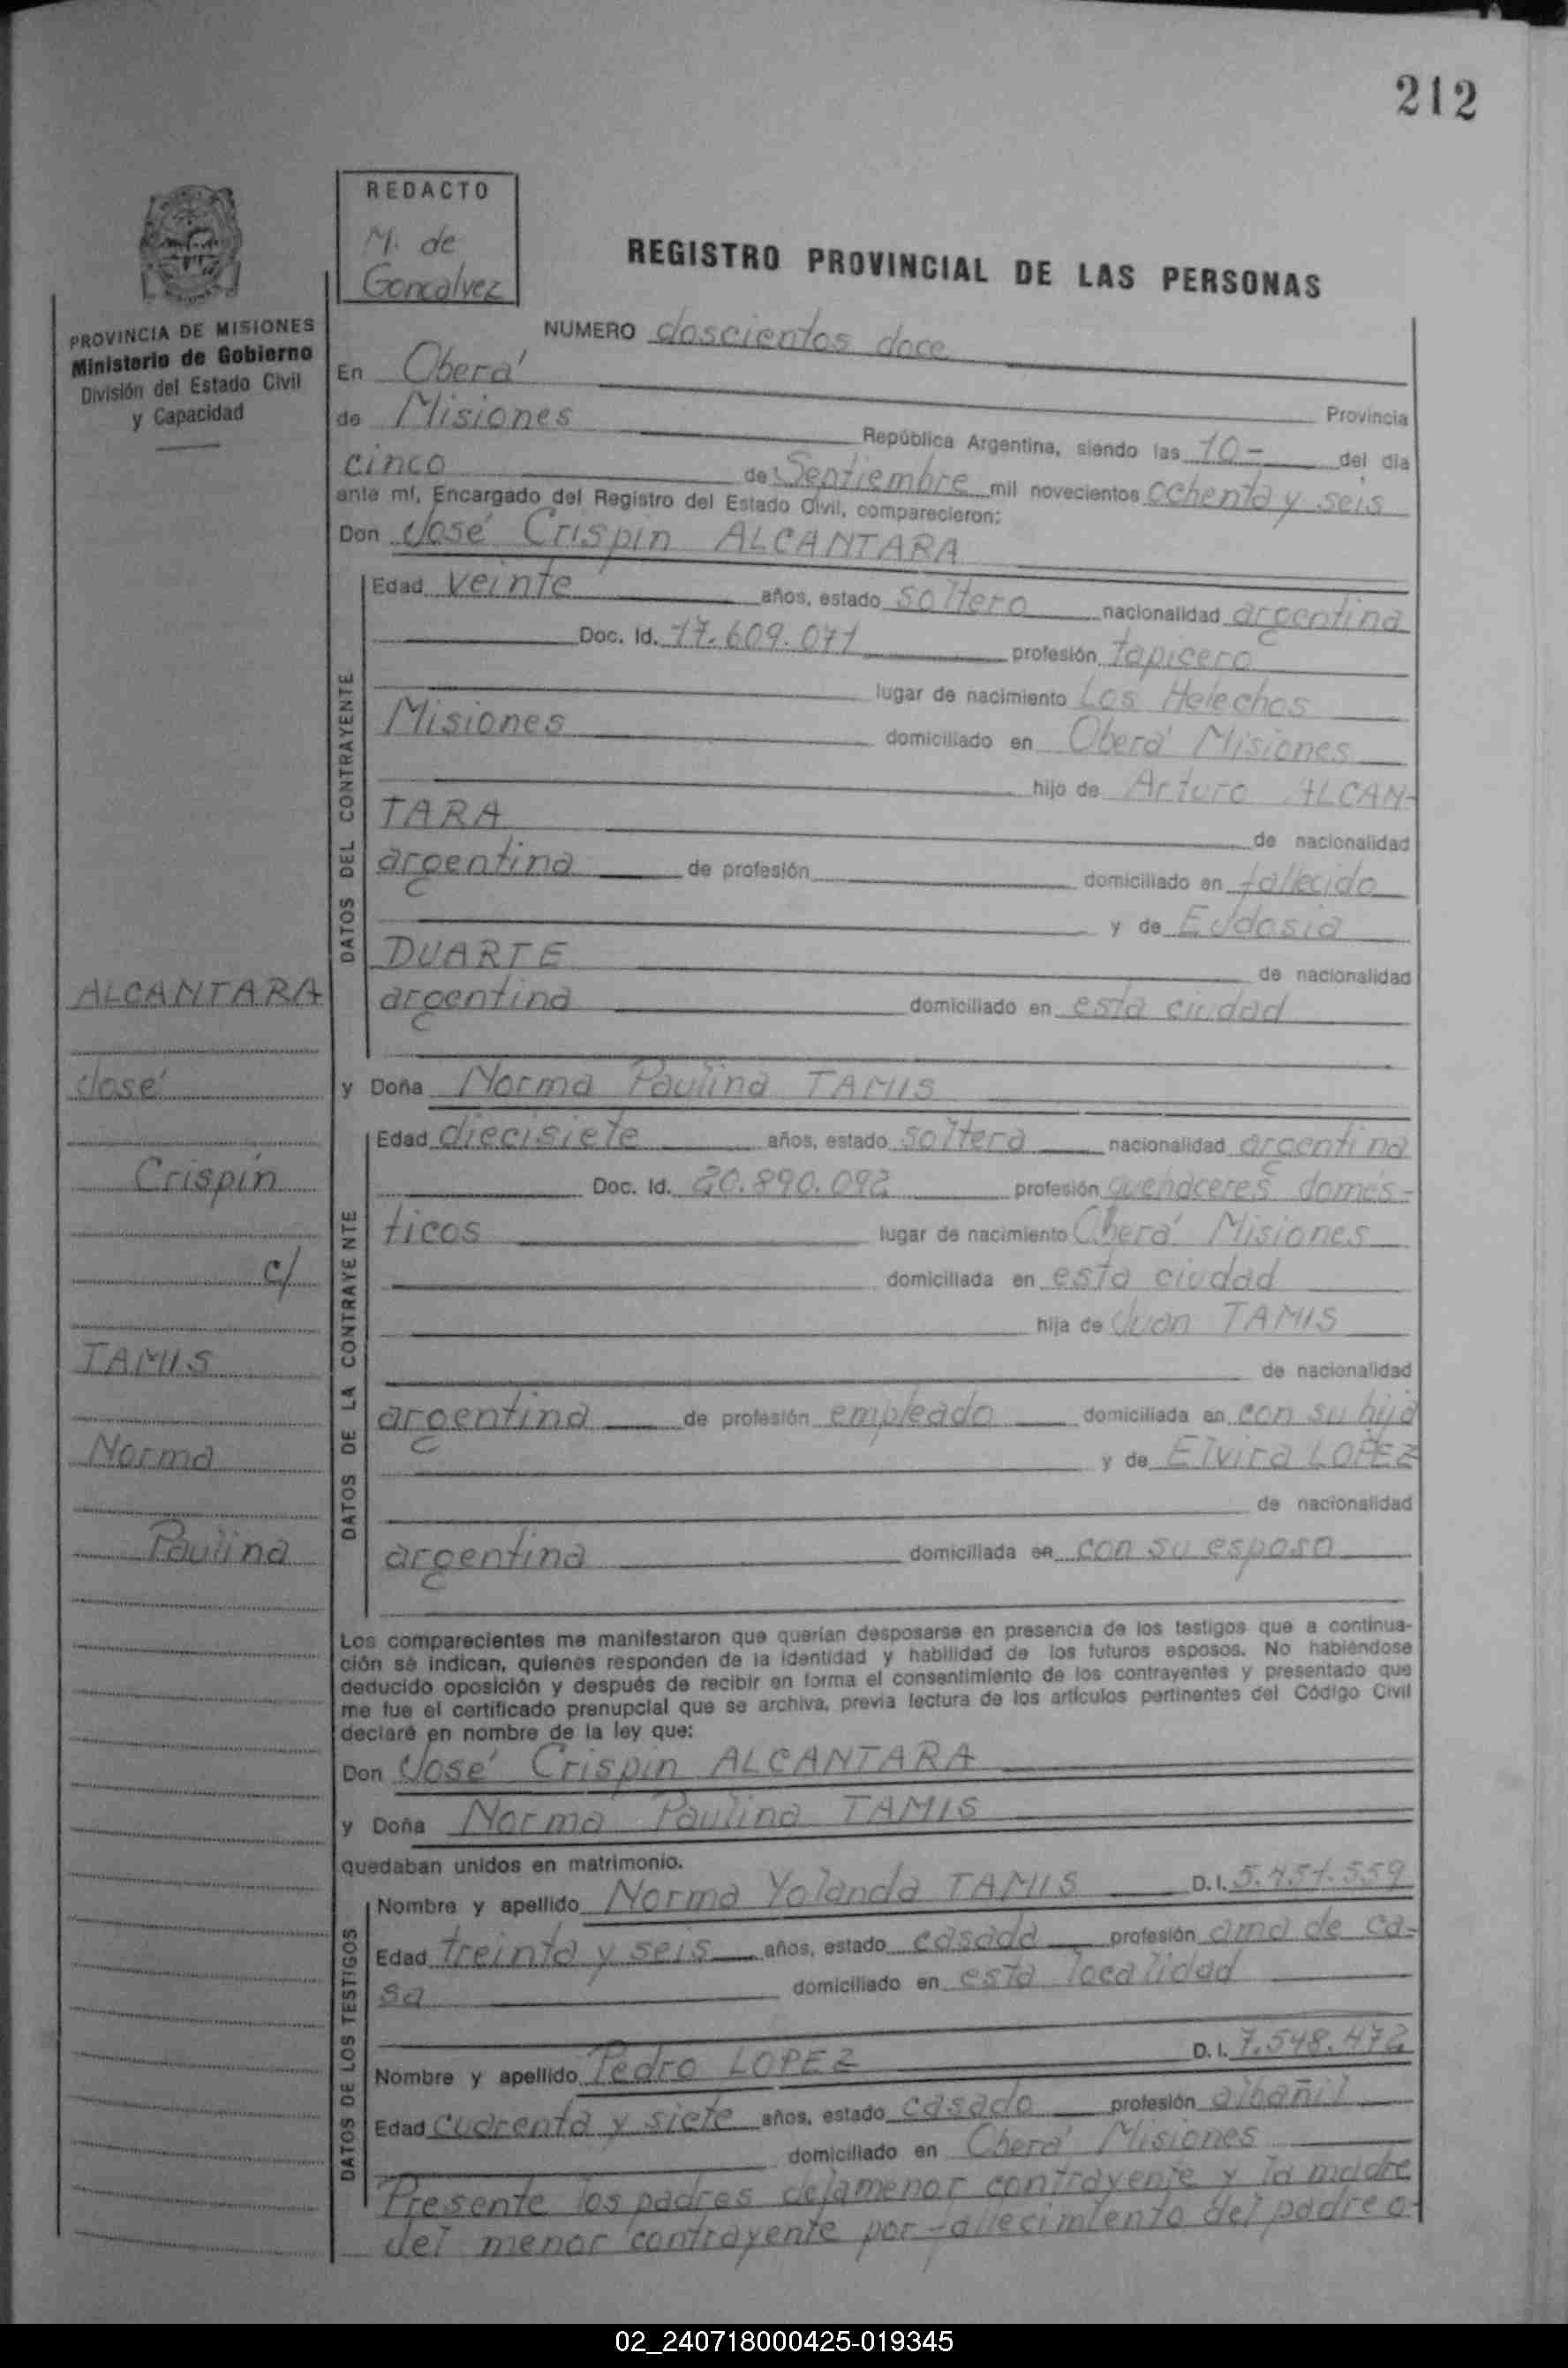 212
REDACTO
M. de
Goncalvez
REGISTRO PROVINCIAL DE LAS PERSONAS
PROVINCIA DE MISIONES
Ministerio de Gobierno
División del Estado Civil
y Capacidad
NUMERO doscientos doce
En Oberá
Provincia
de Misiones República Argentina, siendo las 10- del día
cinco de Septiembre mil novecientos ochenta y seis
ante mí, Encargado del Registro del Estado Civil, comparecieron:
Don José Crispin ALCANTARA
DATOS DEL CONTRAYENTE
Edad veinte años, estado soltero nacionalidad argentina
Doc. Id. 17.609.071 profesión tapicero
lugar de nacimiento Los Helechos
Misiones domiciliado en Oberá Misiones
hijo de Arturo ALCAN-
TARA de nacionalidad
argentina de profesión domiciliado en fallecido
y de Eudosia
DUARTE de nacionalidad
argentina domiciliado en esta ciudad
y Doña Norma Paulina TAMIS
DATOS DE LA CONTRAYENTE
Edad diecisiete años, estado soltera nacionalidad argentina
Doc. Id. 20.890.092 profesión quehaceres domés-
ticos lugar de nacimiento Oberá Misiones
domiciliada en esta ciudad
hija de Juan TAMIS
de nacionalidad
argentina de profesión empleado domiciliada en con su hija
y de Elvira LOPEZ
de nacionalidad
argentina domiciliada en con su esposo
ALCANTARA
José
Crispín
c/
TAMIS
Norma
Paulina
Los comparecientes me manifestaron que querían desposarse en presencia de los testigos que a continua-
ción se indican, quienes responden de la identidad y habilidad de los futuros esposos. No habiéndose
deducido oposición y después de recibir en forma el consentimiento de los contrayentes y presentado que
me fue el certificado prenupcial que se archiva, previa lectura de los artículos pertinentes del Código Civil
declaré en nombre de la ley que:
Don José Crispin ALCANTARA
y Doña Norma Paulina TAMIS
quedaban unidos en matrimonio.
DATOS DE LOS TESTIGOS
Nombre y apellido Norma Yolanda TAMIS D.I. 5.451.559
Edad treinta y seis años, estado casada profesión ama de ca-
sa domiciliado en esta localidad
Nombre y apellido Pedro LOPEZ D.I. 7.548.472
Edad cuarenta y siete años, estado casado profesión albañil
domiciliado en Oberá Misiones
Presente los padres de la menor contrayente y la madre
del menor contrayente por fallecimiento del padre o-
02_240718000425-019345